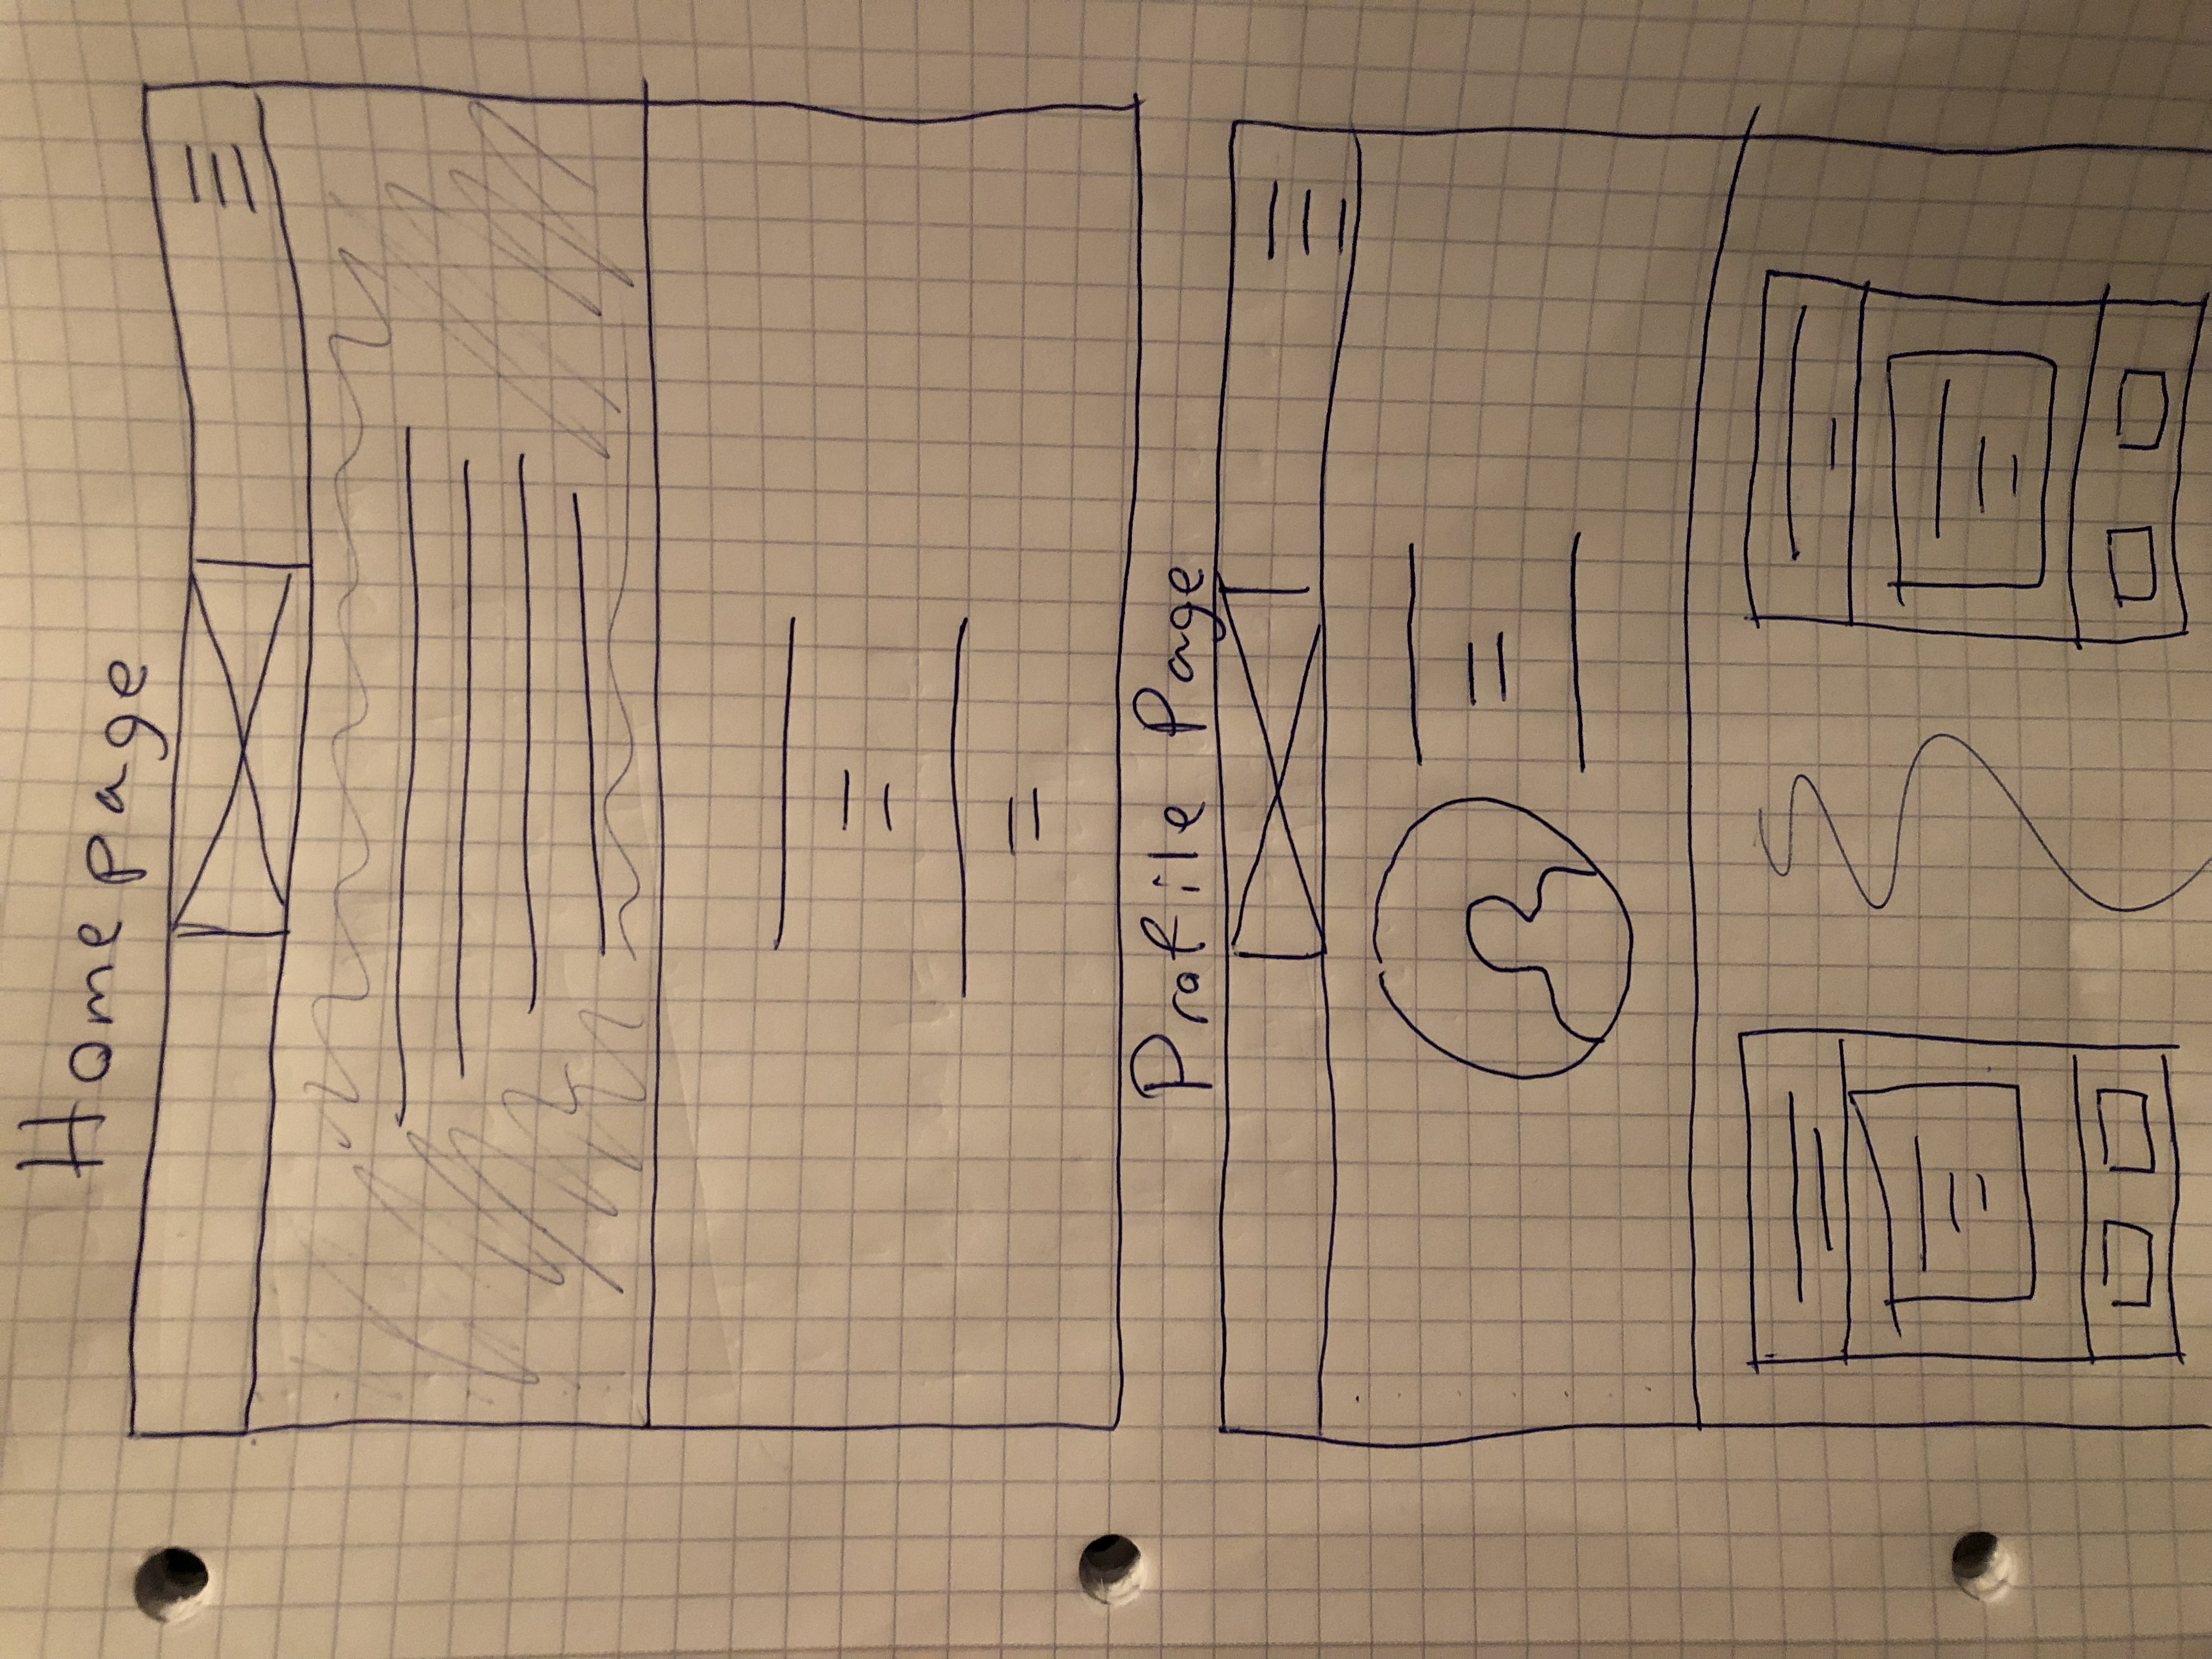 Homepage
Profile Page